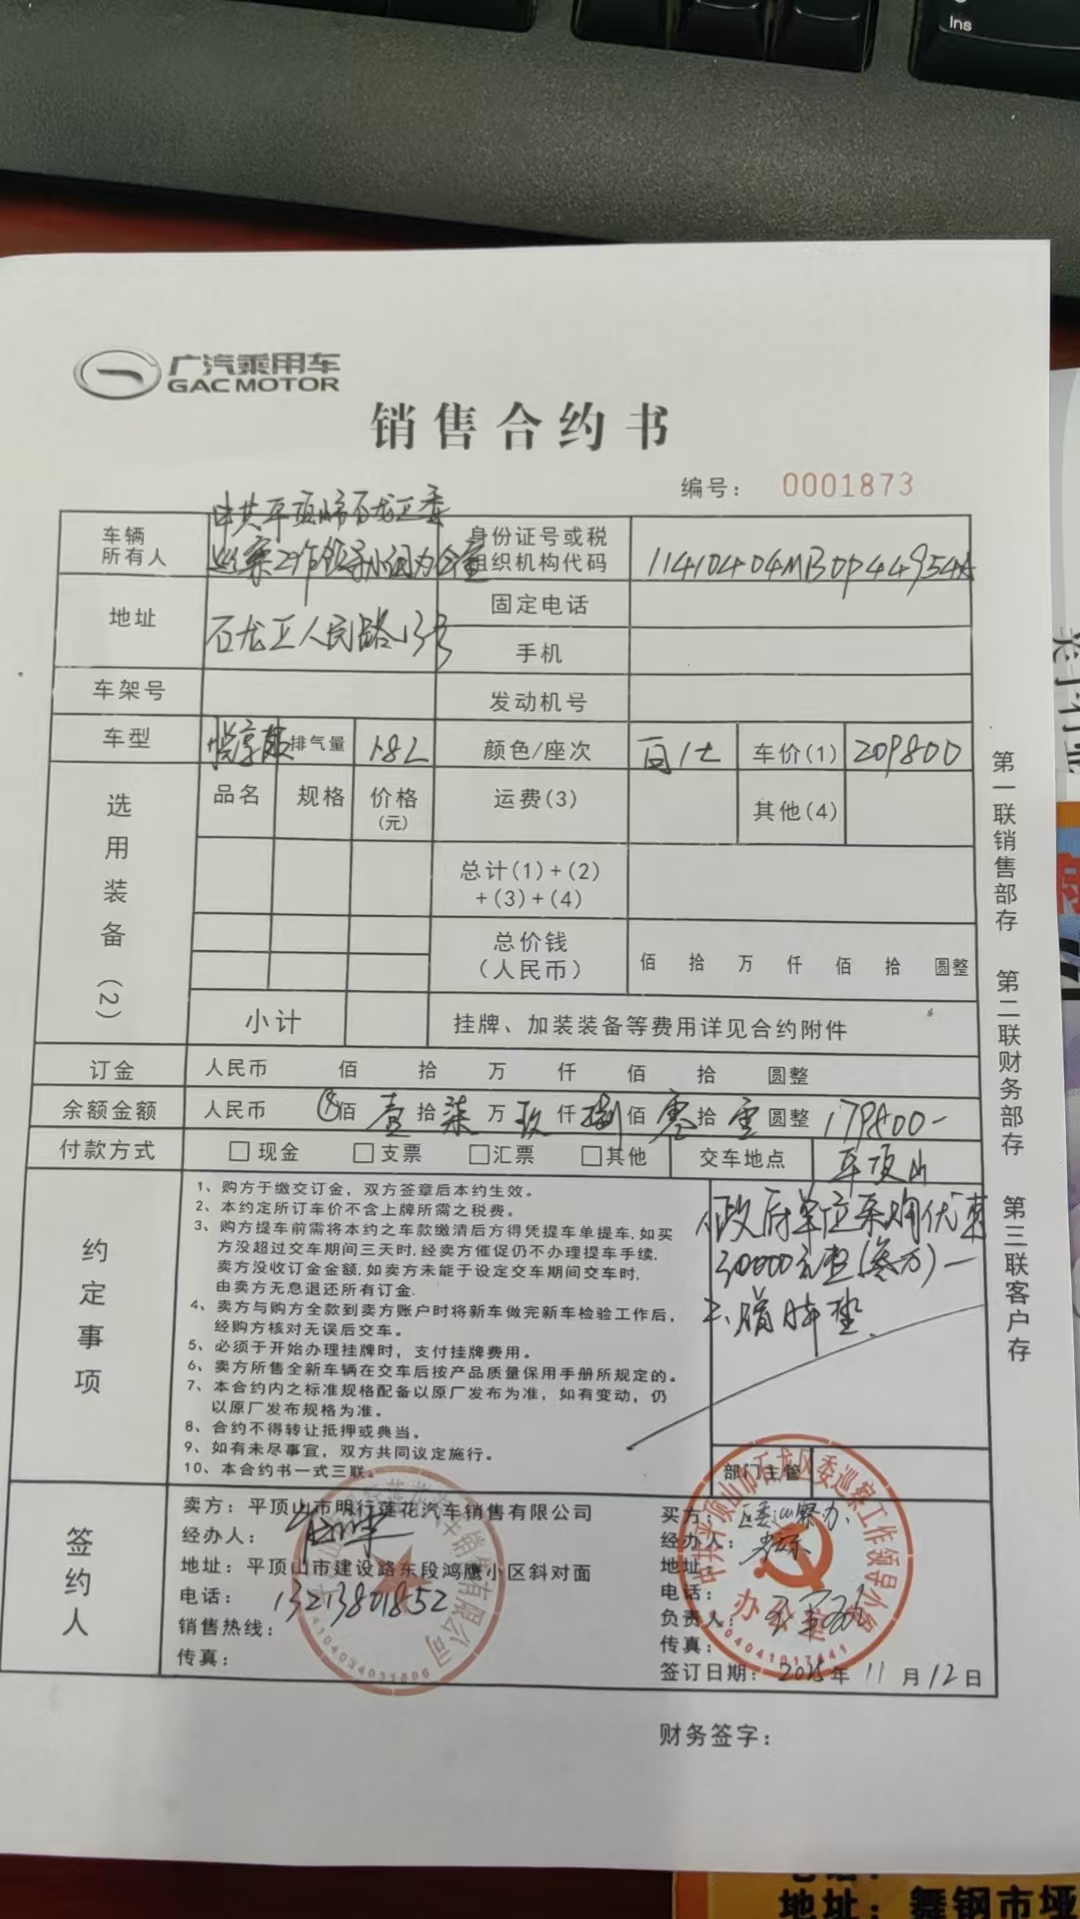 Ins
广汽乘用车
GAC MOTOR
销售合约书
编号： 0001873
车辆所有人 中共平顶山市石龙区委巡察工作领导小组办公室 身份证号或税组织机构代码 11410404MB0P44954A
地址 石龙区人民路13号 固定电话
手机
车架号 发动机号
车型 排气量 1.8L 颜色/座次 白/七 车价(1) 209800
选用装备(2) 品名 规格 价格(元) 运费(3) 其他(4)
总计(1)+(2)+(3)+(4)
总价钱(人民币) 佰 拾 万 仟 佰 拾 圆整
小计 挂牌、加装装备等费用详见合约附件
订金 人民币 佰 拾 万 仟 佰 拾 圆整
余额金额 人民币 ⊗佰 壹拾 柒万 玖仟 捌佰 零拾 零圆整 179800-
付款方式 □现金 □支票 □汇票 □其他 交车地点 平顶山
约定事项
1、购方于缴交订金，双方签章后本约生效。
2、本约定所订车价不含上牌所需之税费。
3、购方提车前需将本约之车款缴清后方得凭提车单提车,如买
方没超过交车期间三天时,经卖方催促仍不办理提车手续,
卖方没收订金金额,如卖方未能于设定交车期间交车时,
由卖方无息退还所有订金.
4、卖方与购方全款到卖方账户时将新车做完新车检验工作后，
经购方核对无误后交车。
5、必须于开始办理挂牌时，支付挂牌费用。
6、卖方所售全新车辆在交车后按产品质量保用手册所规定的。
7、本合约内之标准规格配备以原厂发布为准，如有变动，仍
以原厂发布规格为准。
8、合约不得转让抵押或典当。
9、如有未尽事宜，双方共同议定施行。
10、本合约书一式三联。
政府单位采购优惠
30000元整(叁万)—
部门主管
签约人
卖方：平顶山市明行莲花汽车销售有限公司
经办人：
地址：平顶山市建设路东段鸿鹰小区斜对面
电话：13213801852
销售热线：
传真：
买方：区委巡察办
经办人：
地址：
电话：
负责人：
传真：
签订日期：2025年11月12日
中共平顶山市石龙区委巡察工作领导小组
办公室
财务签字：
第一联销售部存 第二联财务部存 第三联客户存
地址：舞钢市垭